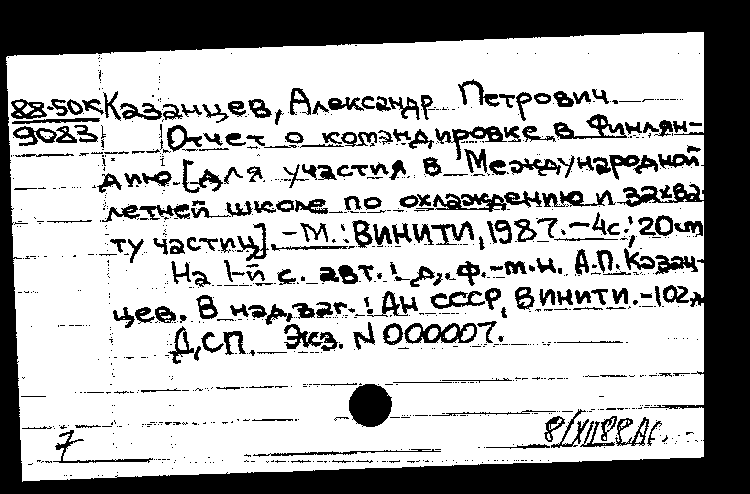 88-50К Казанцев, Александр Петрович.
9083 Отчет о командировке в Финлян-
дию [для участия в Международной
летней школе по охлаждению и захва-
ту частиц]. - М.: ВИНИТИ, 1987. - 4с.; 20 см
На 1-й с. авт.: д. ф.-м.н. А.П. Казан-
цев. В надзаг.: АН СССР, ВИНИТИ. - 102д
ДСП. Экз. N 000007.
7 8/XII 88